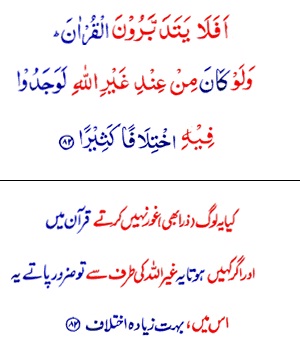 اَفَلَا يَتَدَبَّرُوْنَ الْقُرْاٰنَ ؕ
وَلَوْ كَانَ مِنْ عِنْدِ غَيْرِ اللّٰهِ لَوَجَدُوْا
فِيْهِ اخْتِلَافًا كَثِيْرًا ﴿۸۲﴾
کیا یہ لوگ (ذرا بھی) غور نہیں کرتے قرآن میں
اور اگر کہیں ہوتا یہ غیر اللہ کی طرف سے تو ضرور پاتے یہ
اس میں، بہت زیادہ اختلاف ﴿۸۲﴾